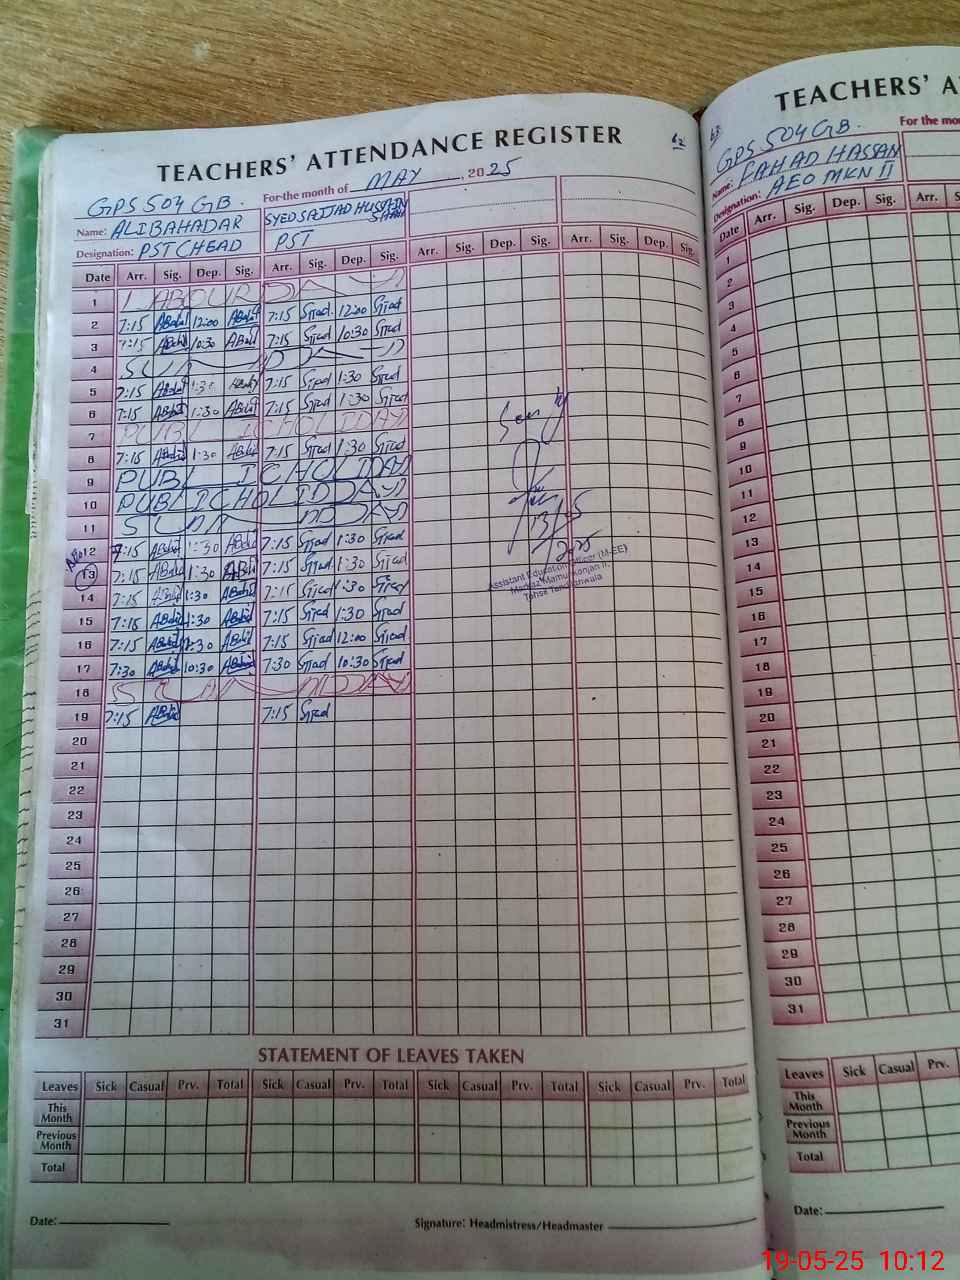 TEACHERS' ATTENDANCE REGISTER 62
For the month of MAY, 2025
GPS 504 GB.
Name: ALI BAHADAR SYED SAJJAD HUSSAIN SHAH
Designation: PST CHEAD PST
Date Arr. Sig. Dep. Sig. Arr. Sig. Dep. Sig. Arr. Sig. Dep. Sig. Arr. Sig. Dep. Sig.
1 LABOUR DAY
2 7:15 ABahd 12:00 ABahd 7:15 Sjjad 12:00 Sjjad
3 7:15 ABahd 10:30 ABahd 7:15 Sjjad 10:30 Sjjad
4 SUNDAY
5 7:15 ABahd 1:30 7:15 Sjjad 1:30 Sjjad
6 7:15 ABahd 1:30 ABahd 7:15 Sjjad 1:30 Sjjad
7 PUBLIC HOLIDAY
8 7:15 ABahd 1:30 ABahd 7:15 Sjjad 1:30 Sjjad
9 PUBLIC HOLIDAY
10 PUBLIC HOLIDDAY
11 SUNDAY
12 7:15 ABahd 1:30 ABahd 7:15 Sjjad 1:30 Sjjad
13 7:15 ABahd 1:30 ABahd 7:15 Sjjad 1:30 Sjjad
14 7:15 ABahd 1:30 ABahd 7:15 Sjjad 1:30 Sjjad
15 7:15 ABahd 1:30 ABahd 7:15 Sjjad 1:30 Sjjad
16 7:15 ABahd ABahd 7:15 Sjjad 12:00 Sjjad
17 7:30 ABahd 10:30 ABahd 7:30 Sjjad 10:30 Sjjad
18 SUNDAY
19 7:15 ABahd 7:15 Sjjad
20
21
22
23
24
25
26
27
28
29
30
31
13/05
2025
Assistant Education Officer (M-EE)
Markaz Mamu Kanjan II,
Tehsil Tandlianwala
STATEMENT OF LEAVES TAKEN
Leaves Sick Casual Prv. Total Sick Casual Prv. Total Sick Casual Prv. Total Sick Casual Prv. Total
This Month
Previous Month
Total
Date: Signature: Headmistress/Headmaster
63
TEACHERS' A
For the mo
GPS 504 GB.
Name: FAHAD HASSAN
Designation: AEO MKN II
Date Arr. Sig. Dep. Sig. Arr. S
1
2
3
4
5
6
7
8
9
10
11
12
13
14
15
16
17
18
19
20
21
22
23
24
25
26
27
28
29
30
31
Leaves Sick Casual Prv.
This Month
Previous Month
Total
Date:
19-05-25 10:12